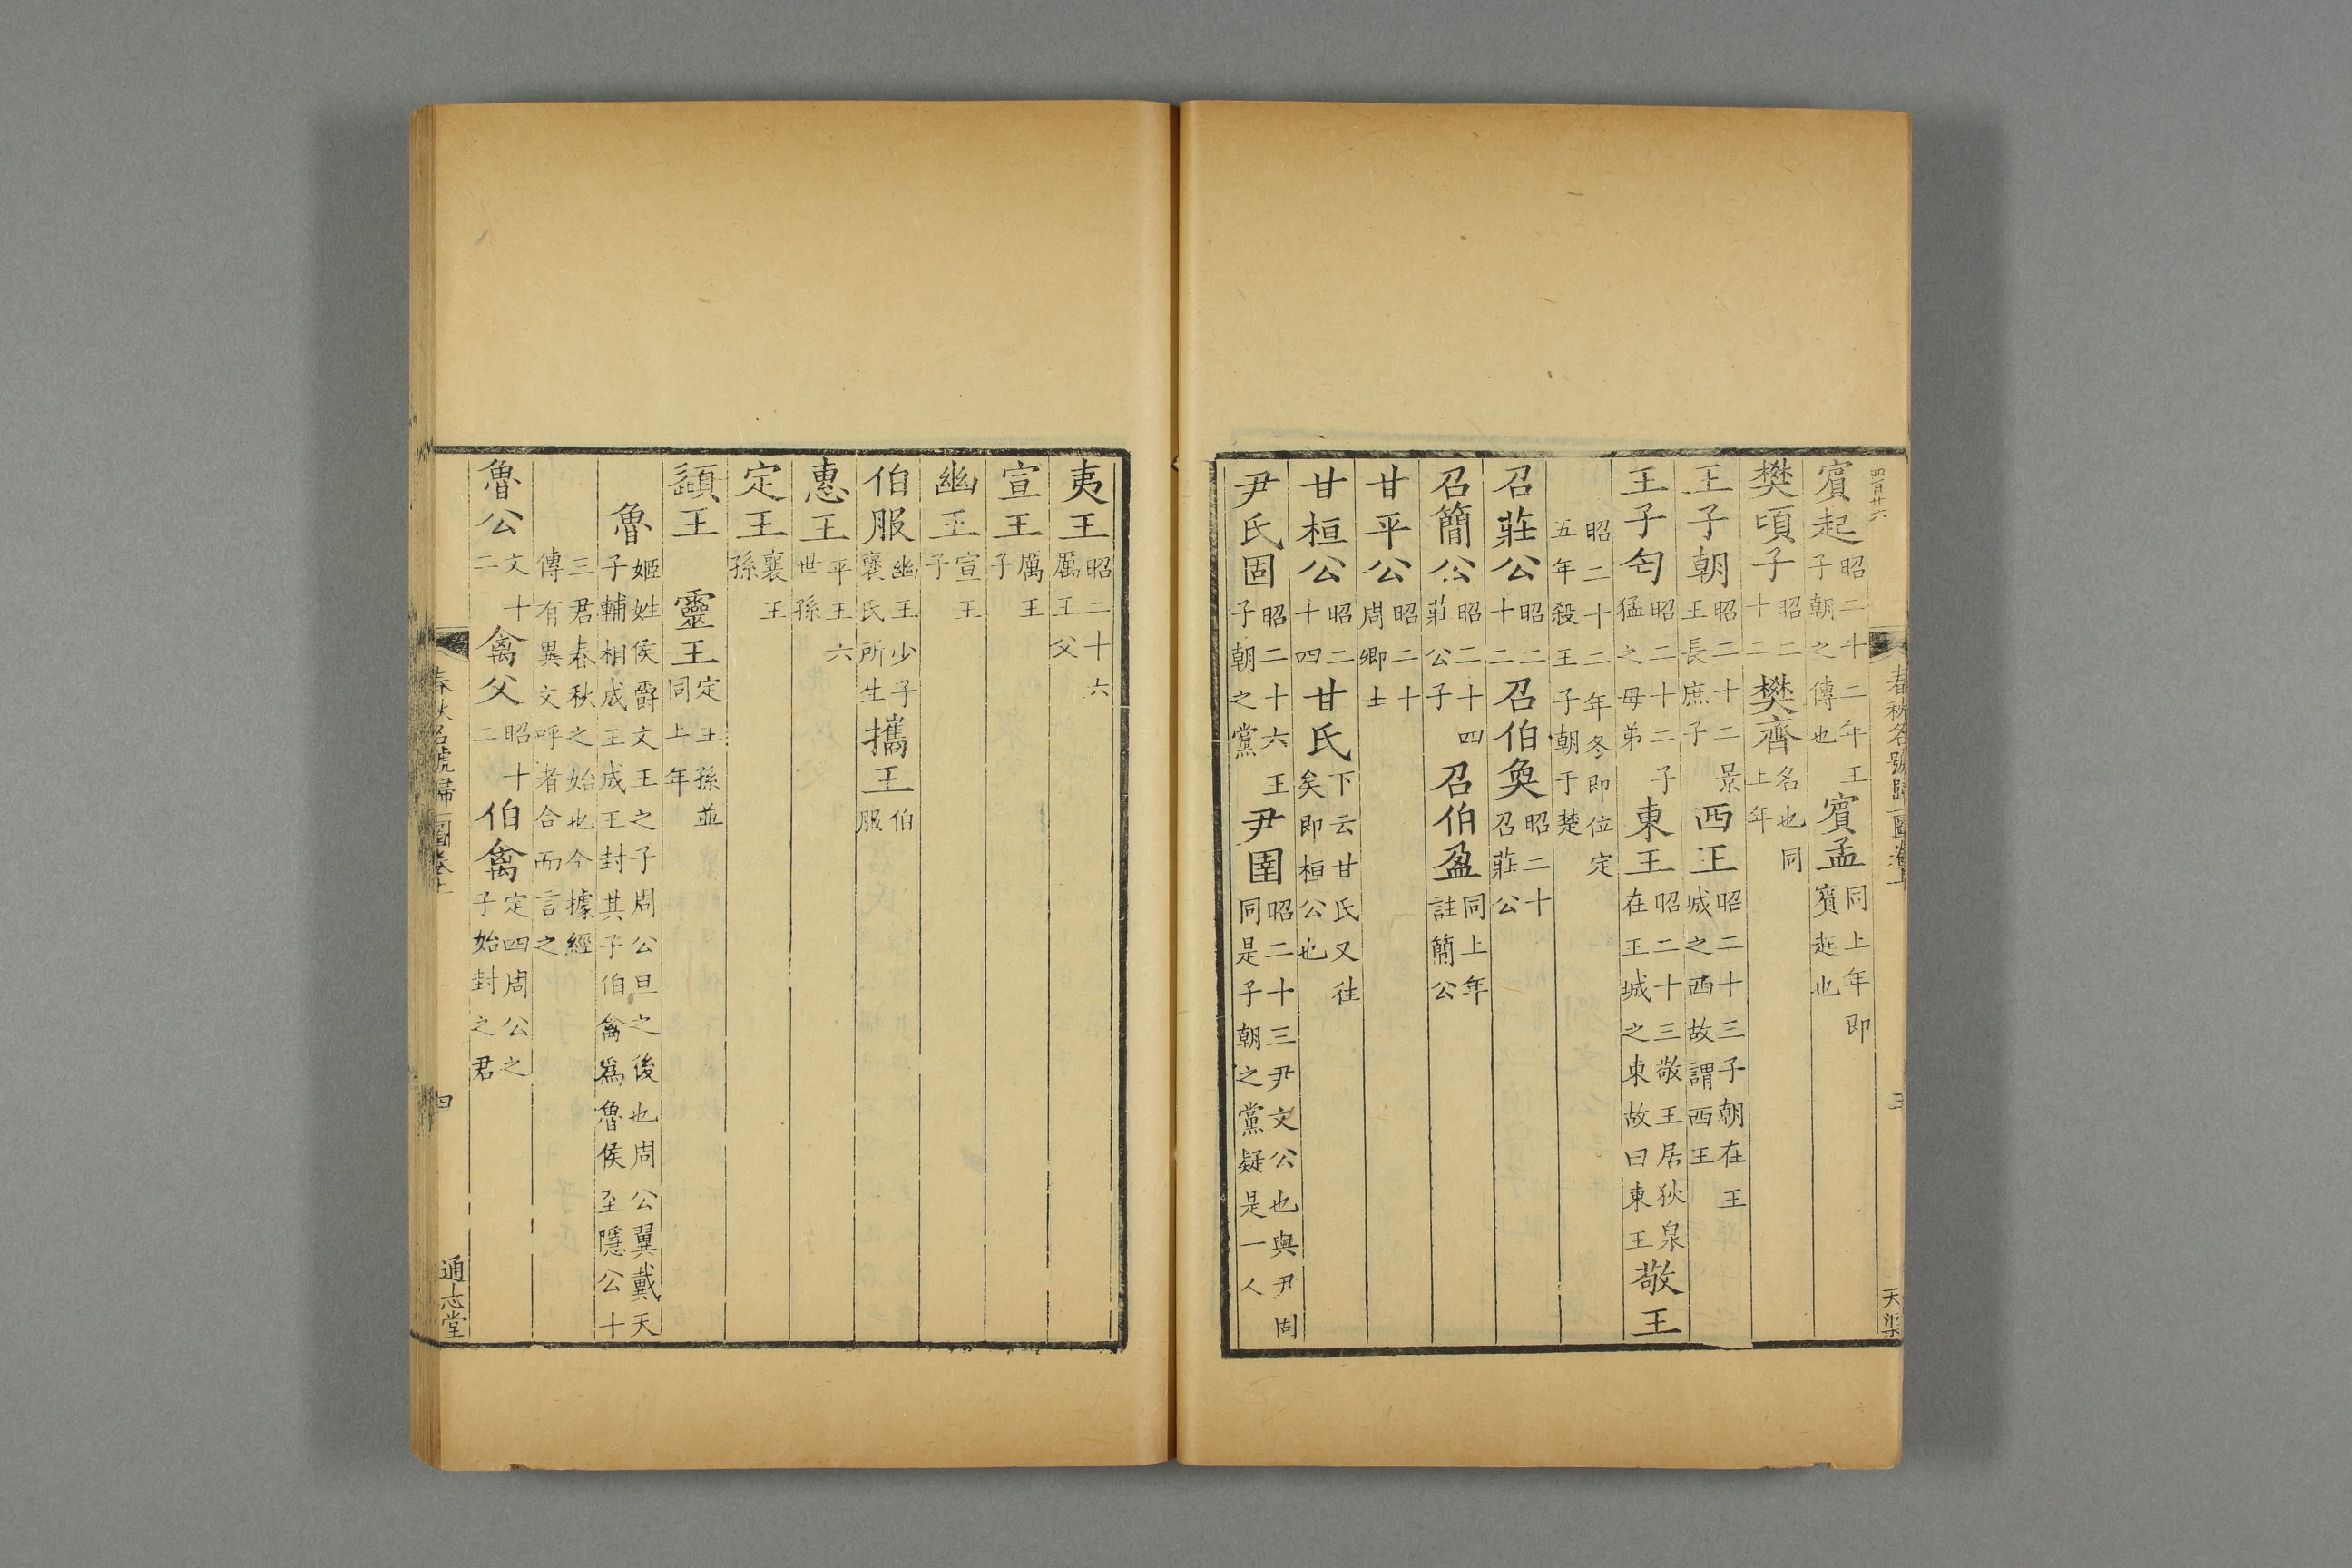 四百廿六
賔起昭二十二年王子朝之傅也賔孟同上年即賔起也
樊頃子昭二十二樊齊名也同上年
王子朝昭二十二景王長庶子西王昭二十三子朝在王城之西故謂西王
王子匄昭二十二子猛之母弟東王昭二十三敬王居狄泉在王城之東故曰東王敬王
昭二十二年冬即位定五年殺王子朝于楚
召莊公昭二十二召伯奐昭二十召莊公
召簡公昭二十四莊公子召伯盈同上年註簡公
甘平公昭二十周卿士
甘桓公昭二十四甘氏下云甘氏又往矣即桓公也
尹氏固昭二十六王子朝之黨尹圉昭二十三尹文公也與尹固同是子朝之黨疑是一人
春秋名號歸一圖卷上
三
天渠
夷王昭二十六厲王父
宣王厲王子
幽王宣王子
伯服幽王少子襃氏所生攜王伯服
惠王平王六世孫
定王襄王孫
頃王 靈王定王孫並同上年
魯姬姓侯爵文王之子周公旦之後也周公翼戴天子輔相成王成王封其子伯禽爲魯侯至隱公十
三君春秋之始也今據經傳有異文呼者合而言之
魯公文十二禽父昭十二伯禽定四周公之子始封之君
春秋名號歸一圖卷上
四
通志堂